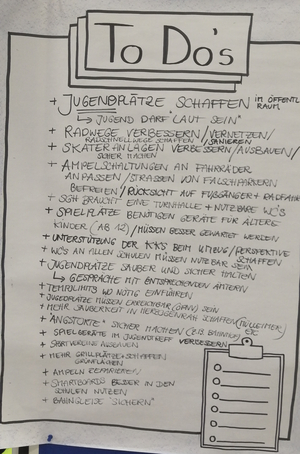 To Do's
+ JUGENDPLÄTZE SCHAFFEN IM ÖFFENTL. RAUM
↳ JUGEND DARF "LAUT SEIN"
+ RADWEGE VERBESSERN/VERNETZEN/
RADSCHNELLWEGE SCHAFFEN/SANIEREN
+ SKATERANLAGEN VERBESSERN/AUSBAUEN/
SICHER MACHEN
+ AMPELSCHALTUNGEN AN FAHRRÄDER
ANPASSEN/STRASSEN VON FALSCHPARKERN
BEFREIEN/RÜCKSICHT AUF FUSSGÄNGER + RADFAHRER
+ SGH BRAUCHT EINE TURNHALLE + NUTZBARE WC'S
+ SPIELPLÄTZE BENÖTIGEN GERÄTE FÜR ÄLTERE
KINDER (AB 12)/MÜSSEN BESSER GEWARTET WERDEN
+ UNTERSTÜTZUNG DER KKS BEIM /PERSPEKTIVE SCHAFFEN
+ WC'S AN ALLEN SCHULEN MÜSSEN NUTZBAR SEIN
+ JUGENDPLÄTZE SAUBER UND SICHER HALTEN
↳ GESPRÄCHE MIT ENTSPRECHENDEN ÄMTERN
+ TEMPOLIMITS WO NÖTIG EINFÜHREN
+ JUGENDPLÄTZE MÜSSEN ERREICHBAR (ÖPNV) SEIN
+ MEHR SAUBERKEIT IN HERZOGENRATH SCHAFFEN (MÜLLEIMER)
+ "ANGSTORTE" SICHER MACHEN (Z.B. BAHNHOF) ETC
+ SPIELGERÄTE IM JUGENDTREFF VERBESSERN
+ SPORTVEREINE AUSBAUEN
+ MEHR GRILLPLÄTZE SCHAFFEN
GRÜNFLÄCHEN
+ AMPELN REPARIEREN
+ SMARTBOARDS BESSER IN DEN
SCHULEN NUTZEN
+ BAHNGLEISE "SICHERN"